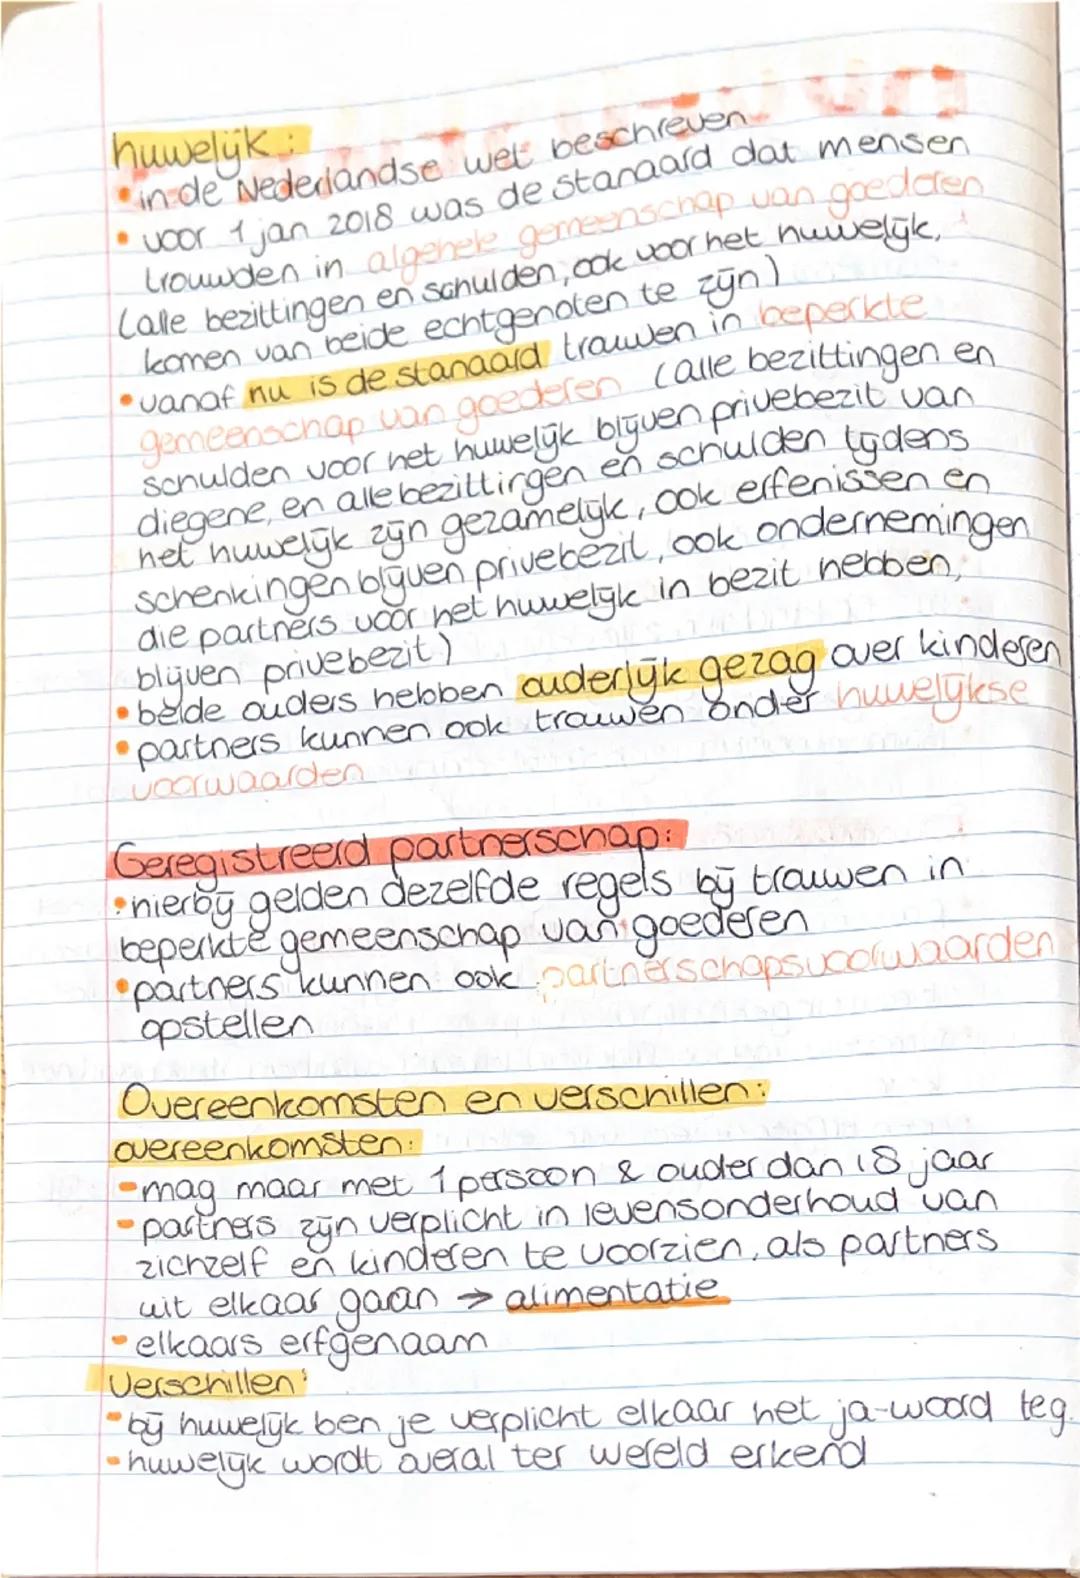 huwelijk:
• in de Nederlandse wet beschreven
• voor 1 jan 2018 was de standaard dat mensen
trouwden in algehele gemeenschap van goederen
(alle bezittingen en schulden, ook voor het huwelijk,
komen van beide echtgenoten te zijn)
• vanaf nu is de standaard trouwen in beperkte
gemeenschap van goederen (alle bezittingen en
schulden voor het huwelijk blijven privebezit van
diegene, en alle bezittingen en schulden tijdens
het huwelijk zijn gezamelijk, ook erfenissen en
schenkingen blijven privebezit, ook ondernemingen
die partners voor het huwelijk in bezit hebben,
blijven privebezit)
• beide ouders hebben ouderlijk gezag over kinderen
• partners kunnen ook trouwen onder huwelijkse
voorwaarden
Geregistreerd partnerschap:
• hierbij gelden dezelfde regels bij trouwen in
beperkte gemeenschap van goederen
• partners kunnen ook partnerschapsvoorwaarden
opstellen
Overeenkomsten en verschillen:
overeenkomsten:
- mag maar met 1 persoon & ouder dan 18 jaar
- partners zijn verplicht in levensonderhoud van
zichzelf en kinderen te voorzien, als partners
uit elkaar gaan → alimentatie
- elkaars erfgenaam
Verschillen:
- bij huwelijk ben je verplicht elkaar het ja-woord teg.
- huwelijk wordt overal ter wereld erkend